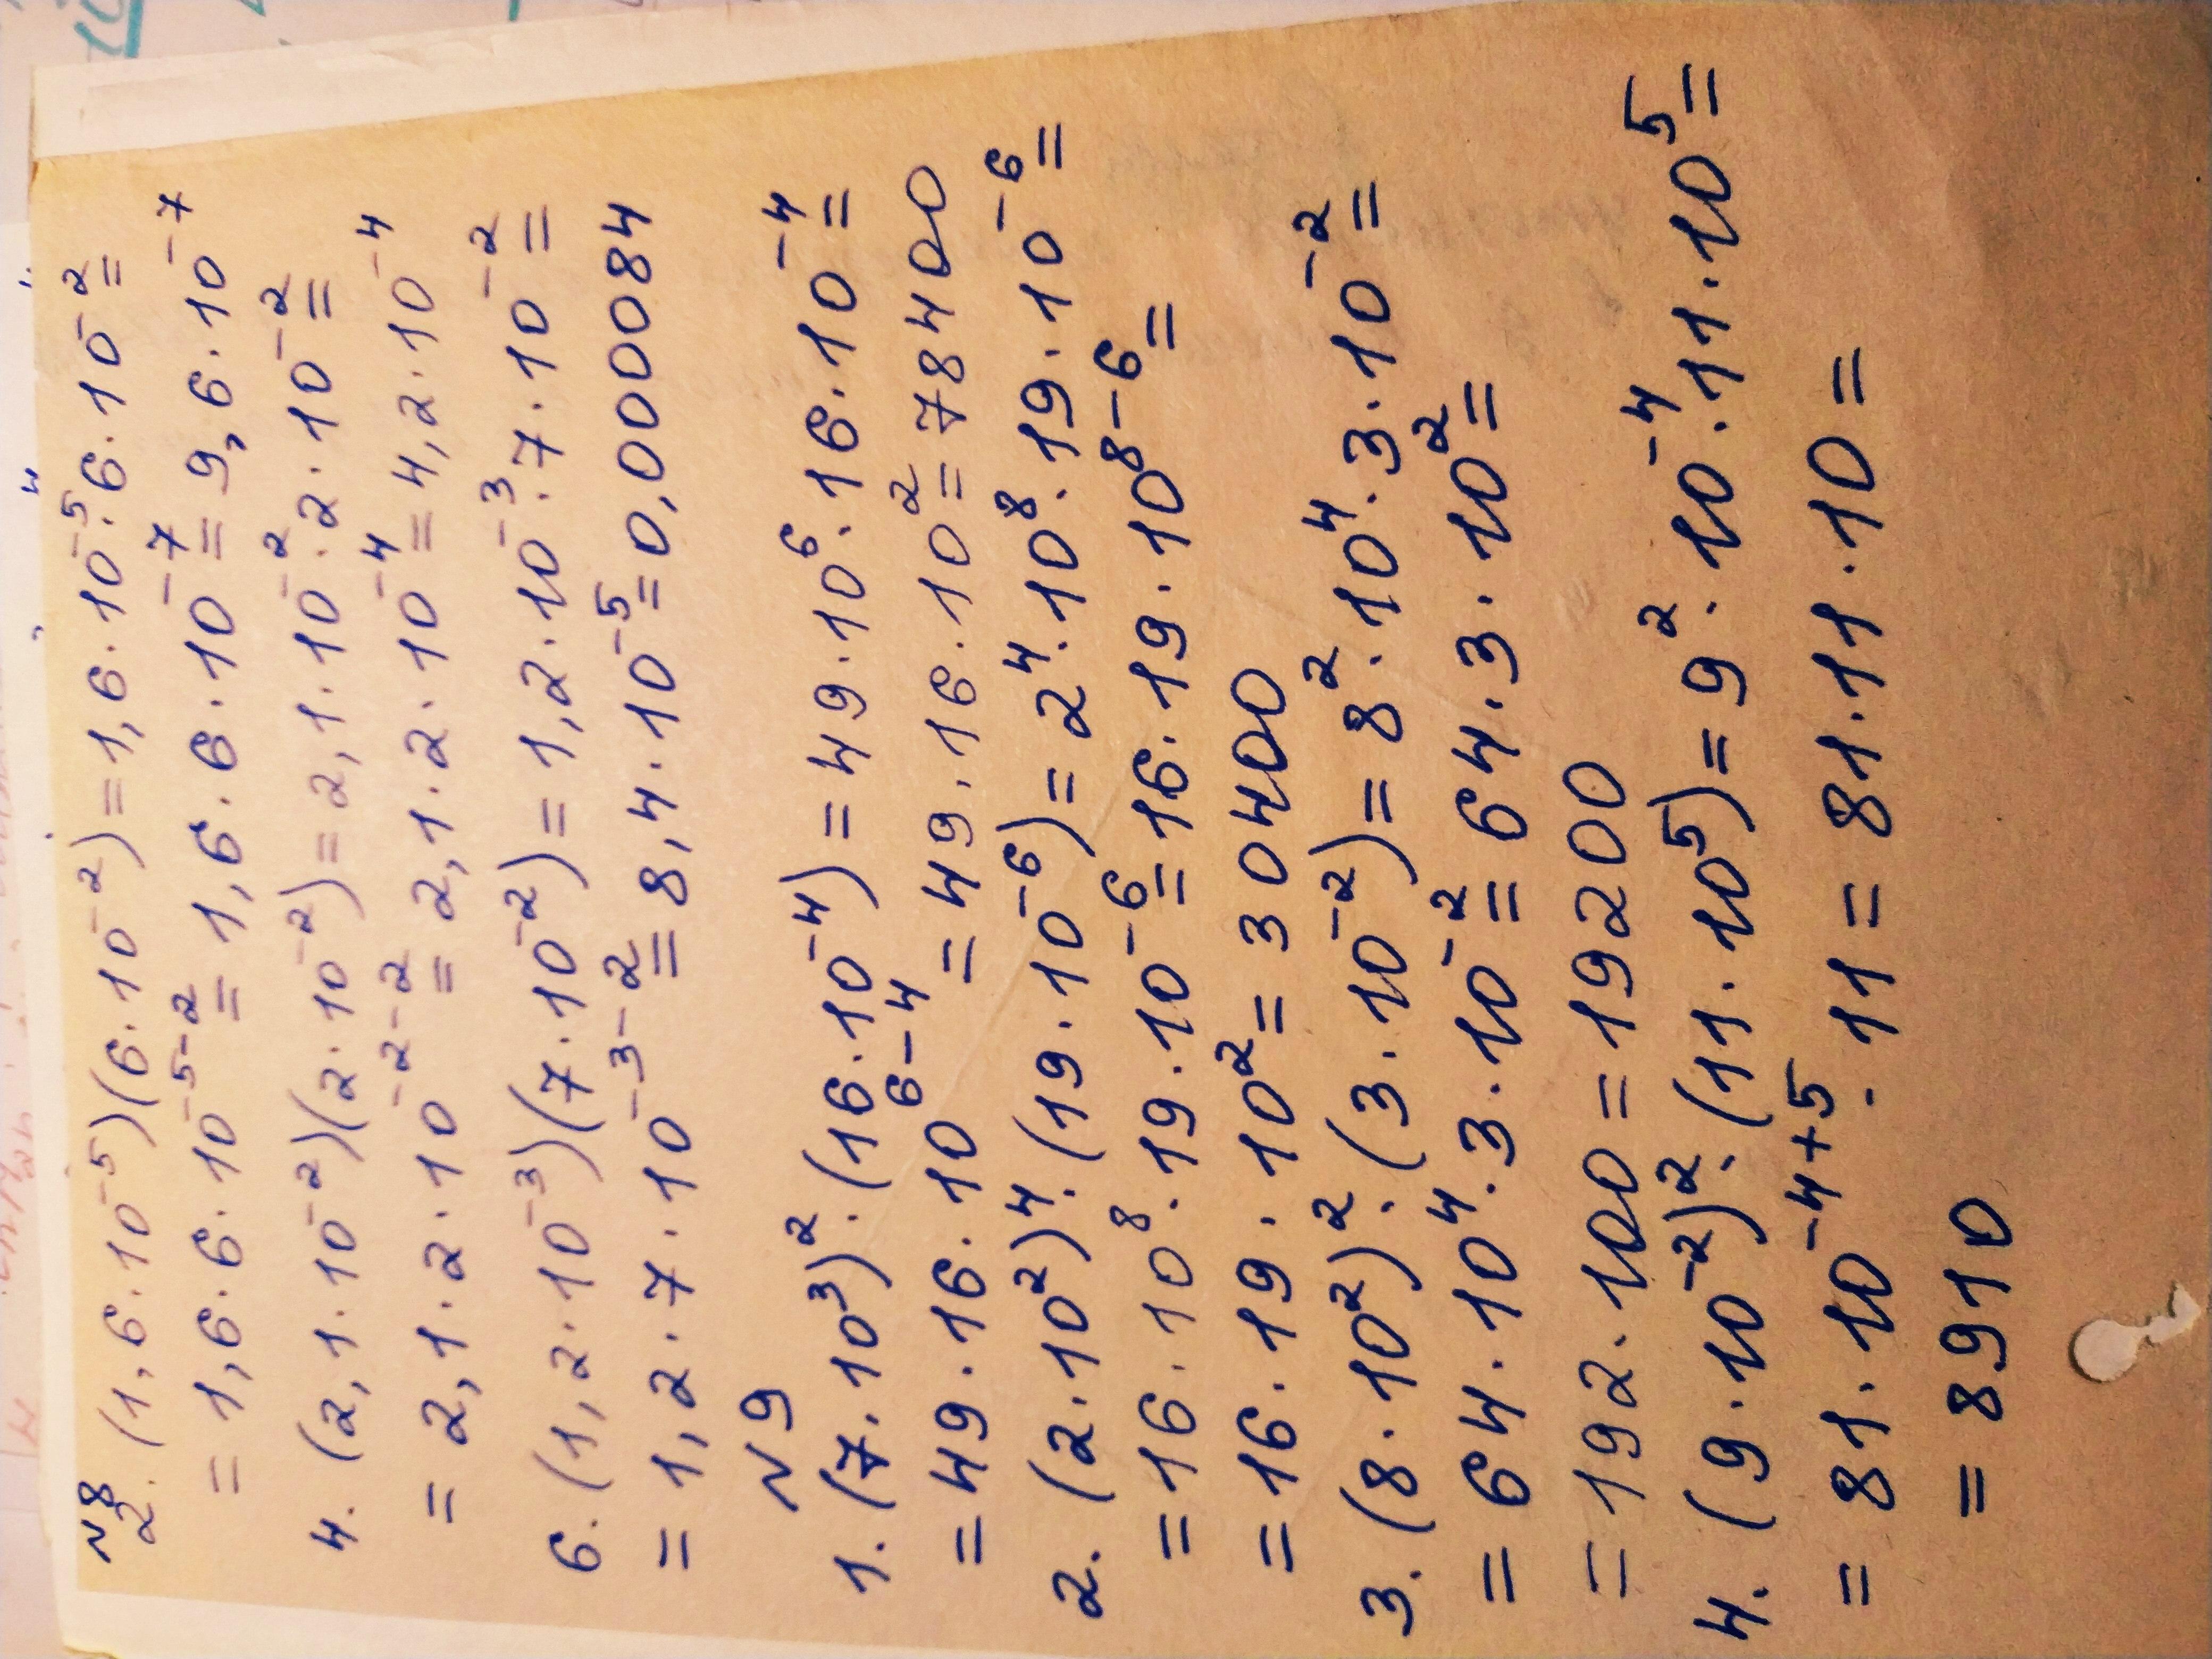 N8
2. (1,6·10⁻⁵)(6·10⁻²)=1,6·10⁻⁵·6·10⁻²=
=1,6·6·10⁻⁵⁻²=1,6·6·10⁻⁷=9,6·10⁻⁷
4. (2,1·10⁻²)(2·10⁻²)=2,1·10⁻²·2·10⁻²=
=2,1·2·10⁻²⁻²=2,1·2·10⁻⁴=4,2·10⁻⁴
6. (1,2·10⁻³)(7·10⁻²)=1,2·10⁻³·7·10⁻²=
=1,2·7·10⁻³⁻²=8,4·10⁻⁵=0,000084
N9
1. (7·10³)²·(16·10⁻⁴)=49·10⁶·16·10⁻⁴=
=49·16·10⁶⁻⁴=49·16·10²=78400
2. (2·10²)⁴·(19·10⁻⁶)=2⁴·10⁸·19·10⁻⁶=
=16·10⁸·19·10⁻⁶=16·19·10⁸⁻⁶=
=16·19·10²=30400
3. (8·10²)²·(3·10⁻²)=8²·10⁴·3·10⁻²=
=64·10⁴·3·10⁻²=64·3·10²=
=192·100=19200
4. (9·10⁻²)²·(11·10⁵)=9²·10⁻⁴·11·10⁵=
=81·10⁻⁴⁺⁵·11=81·11·10=
=8910